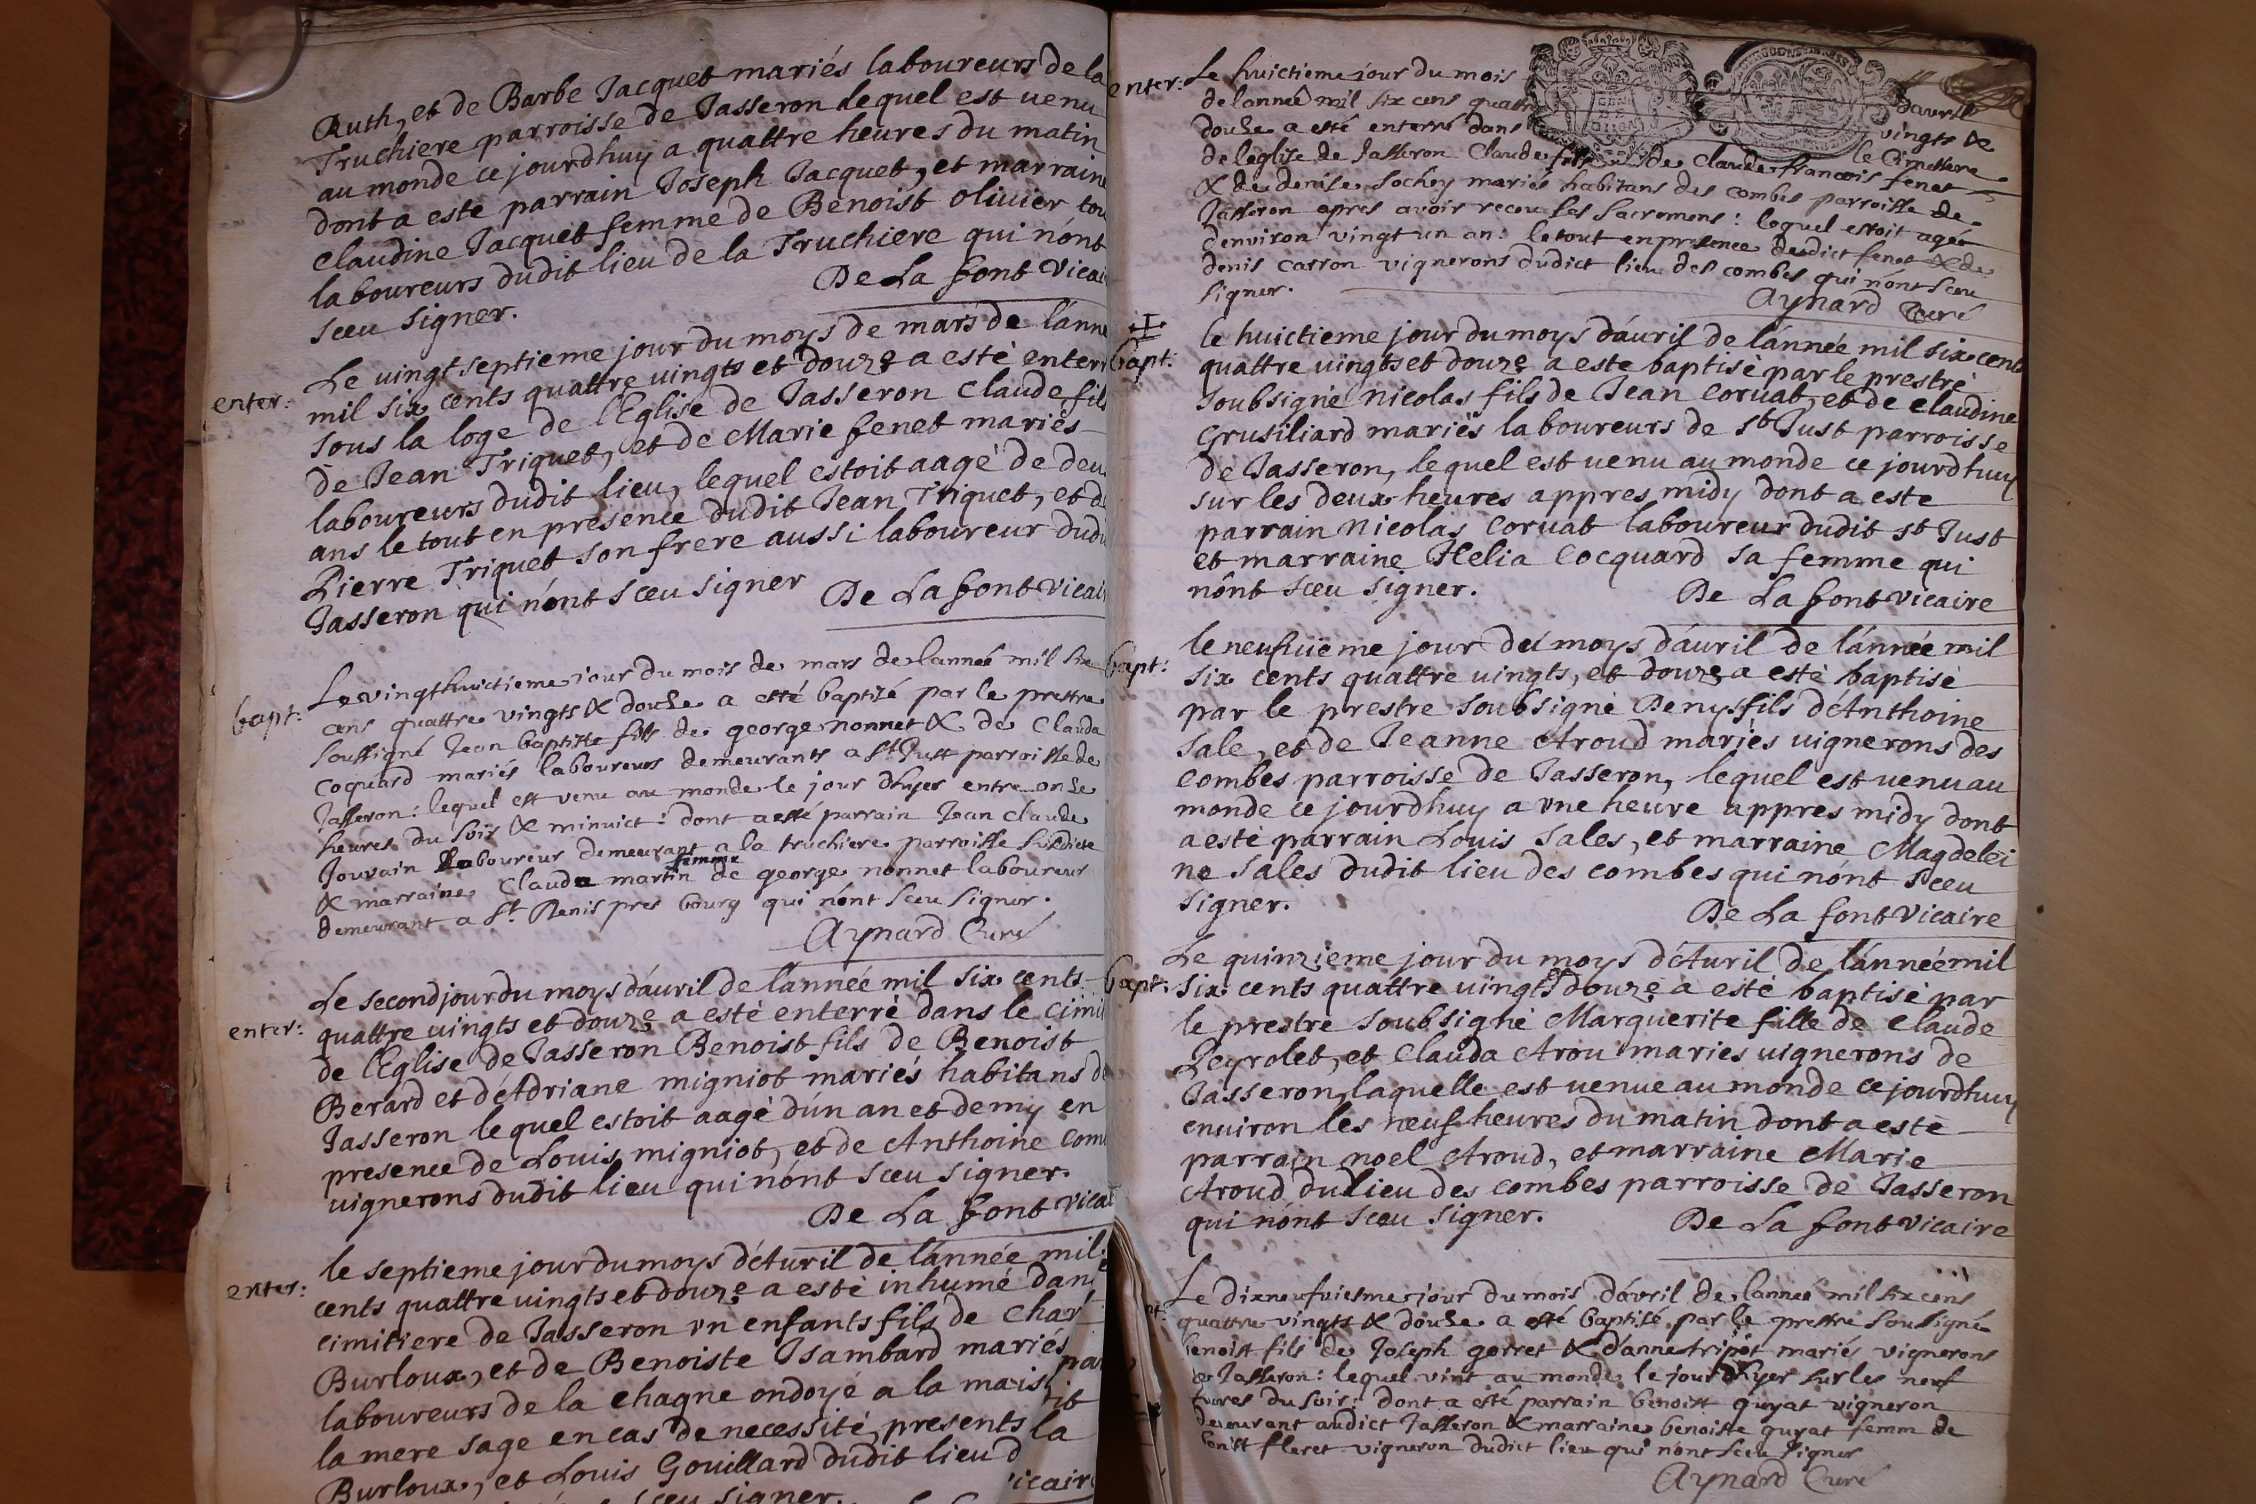 Ruth, et de Barbe Jacquet mariés laboureurs de la
Truchiere parroisse de Jasseron lequel est venu
au monde ce jourdhuy a quattre heures du matin
dont a esté parrain Joseph Jacquet, et marraine
Claudine Jacquet femme de Benoist olivier tou
laboureurs dudit lieu de la Truchiere qui n'ont
sceu signer.
De La font vicai
enter:
Le vingt septieme jour du moys de mars de l'anné
mil six cents quattre vingts et douze a esté enterr
sous la loge de l'Eglise de Jasseron Claude fils
de Jean Triquet, et de Marie fenet mariés
laboureurs dudit lieu, lequel estoit aagé de deu
ans le tout en presence dudit Jean Triquet, et de
Pierre Triquet son frere aussi laboureur dudi
Jasseron qui n'ont sceu signer
De La font vicai
bapt:
Le vingthuictieme iour du mois de mars de lanneé mil six
cens quattre vingts & douze a esté baptizé par le prestre
soussigné Jean baptiste fils de george nonnet & de Clauda
coquard mariés laboureurs demeurants a st Just parroisse de
Jasseron: lequel est venu au monde le jour dhyer entre onze
heures du soir & minuict: dont a esté parrain Jean claude
Jouvain laboureur demeurant a la truchiere parroisse susdicte
& marraine Clauda martin femme de george nonnet laboureur
demeurant a st Denis pres bourg qui n'ont sceu signer.
Aynard Curé
enter:
Le second jour du moys d'auril de l'année mil six cents
quattre vingts et douze a esté enterré dans le cimit
de l'Eglise de Jasseron Benoist fils de Benoist
Berard et d'Adriane migniot mariés habitans de
Jasseron lequel estoit aagé d'un an et demy en
presence de Louis migniot, et de Anthoine Com
vignerons dudit lieu qui n'ont sceu signer.
De La font vicai
enter:
le septieme jour du moys d'Auril de l'année mil
cents quattre vingts et douze a esté inhumé dans
cimitiere de Jasseron un enfants fils de Charl
Burloux, et de Benoiste Isambard mariés
laboureurs de la Chagne ondoyé a la mais par
la mere sage en cas de necessité, presents
Burloux, et Louis Gouillard dudit lieu d la
sceu signer.
icaire
enter:
Le huictieme iour du mois davril
de lanneé mil six cens quattre vingts &
douze a esté enterré dans le Cimettiere
de leglise de Jasseron Claude fils de Claude francois fenet
& de denise Sochey mariés habitans des combes parroisse de
Jasseron apres avoir receu ses sacremens: lequel estoit ageé
denviron vingt un an: le tout en presence dudict fenet & de
denis carron vignerons dudict lieu des combes qui n'ont sceu
signer.
Aynard Curé
bapt:
le huictieme jour du moys d'auril de l'année mil six cents
quattre vingts et douze a esté baptisé par le prestre
soubsigné Nicolas fils de Jean Coruat, et de Claudine
Grusiliard mariés laboureurs de st Just parroisse
de Jasseron, lequel est venu au monde ce jourdhuy
sur les deux heures appres midy dont a esté
parrain Nicolas Coruat laboureur dudit st Just
et marraine Helia Cocquard sa femme qui
n'ont sceu signer.
De La font vicaire
bapt:
le neufuieme jour du moys d'auril de l'année mil
six cents quattre vingts, et douze a esté baptisé
par le prestre soubsigné Denys fils d'Anthoine
Sale, et de Jeanne Aroud mariés vignerons des
combes parroisse de Jasseron, lequel est venu au
monde ce jourdhuy a une heure appres midy dont
a esté parrain Louis Sales, et marraine Magdelei
ne Sales dudit lieu des combes qui n'ont sceu
signer.
De La font vicaire
bapt:
Le quinzieme jour du moys d'Auril de l'année mil
six cents quattre vingts et douze a esté baptisé par
le prestre soubsigné Marguerite fille de Claude
Peyrolet, et Clauda Arou mariés vignerons de
Jasseron, laquelle est venue au monde ce jourdhuy
enuiron les neuf heures du matin dont a esté
parrain noel Aroud, et marraine Marie
Aroud du lieu des combes parroisse de Jasseron
qui n'ont sceu signer.
De La font vicaire
Le dixneufviesme jour du mois d'avril de lanneé mil six cens
quattre vingts & douze a esté baptisé par le prestre soussigné
benoist fils de Joseph gorret & d'anne tripot mariés vignerons
de Jasseron: lequel vint au monde le jour dhyer sur les neuf
heures du soir: dont a esté parrain benoist guyat vigneron
demeurant audict Jasseron & marraine benoiste guyat femm de
benoist floret vigneron dudict lieu qui n'ont sceu signer
Aynard Curé